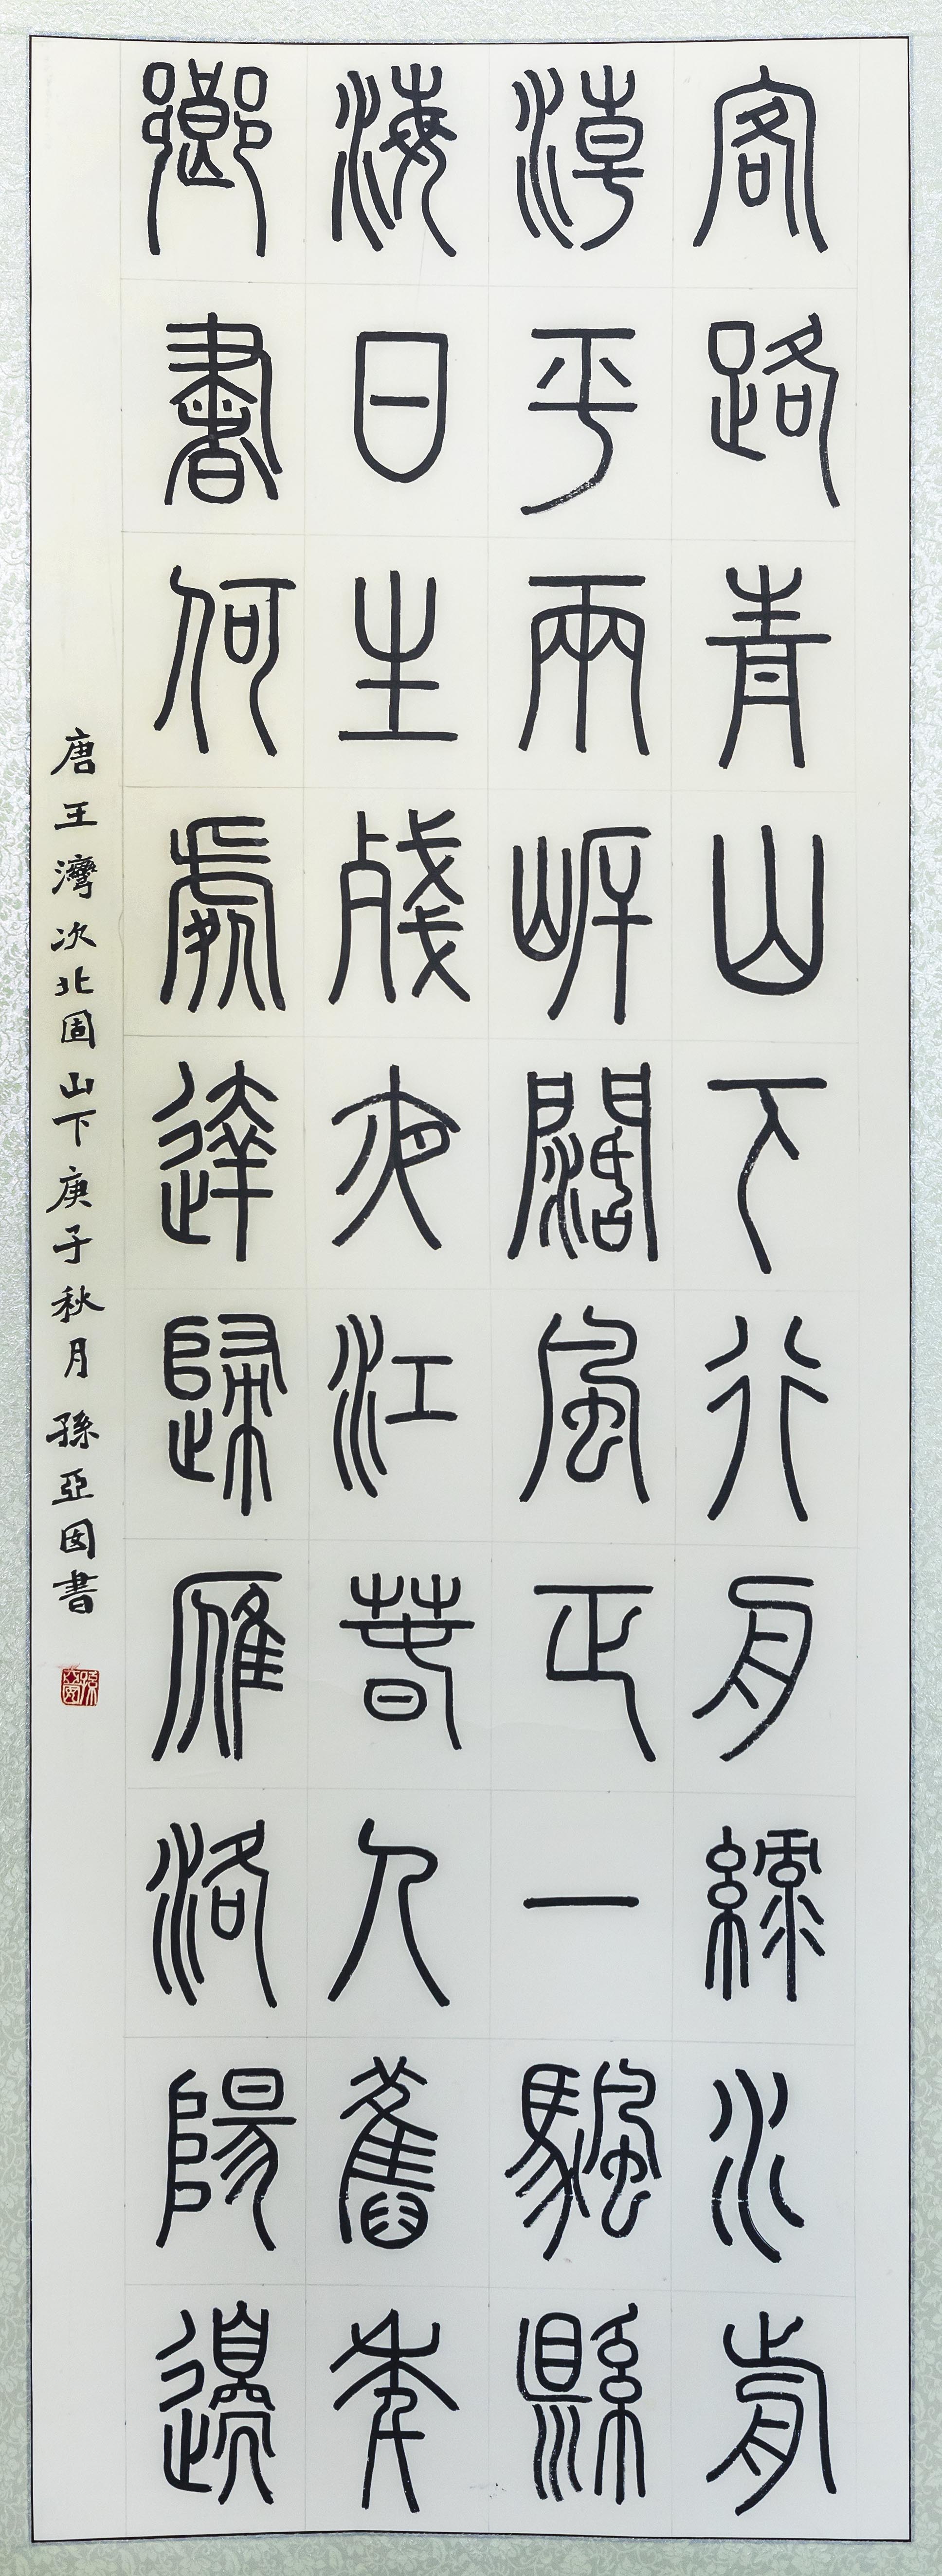 客路青山下行舟綠水前
潮平兩岸闊風正一颿縣
海日生殘夜江春入舊年
鄉書何處達歸雁洛陽邊
唐王灣次北固山下庚子秋月孫亞囡書